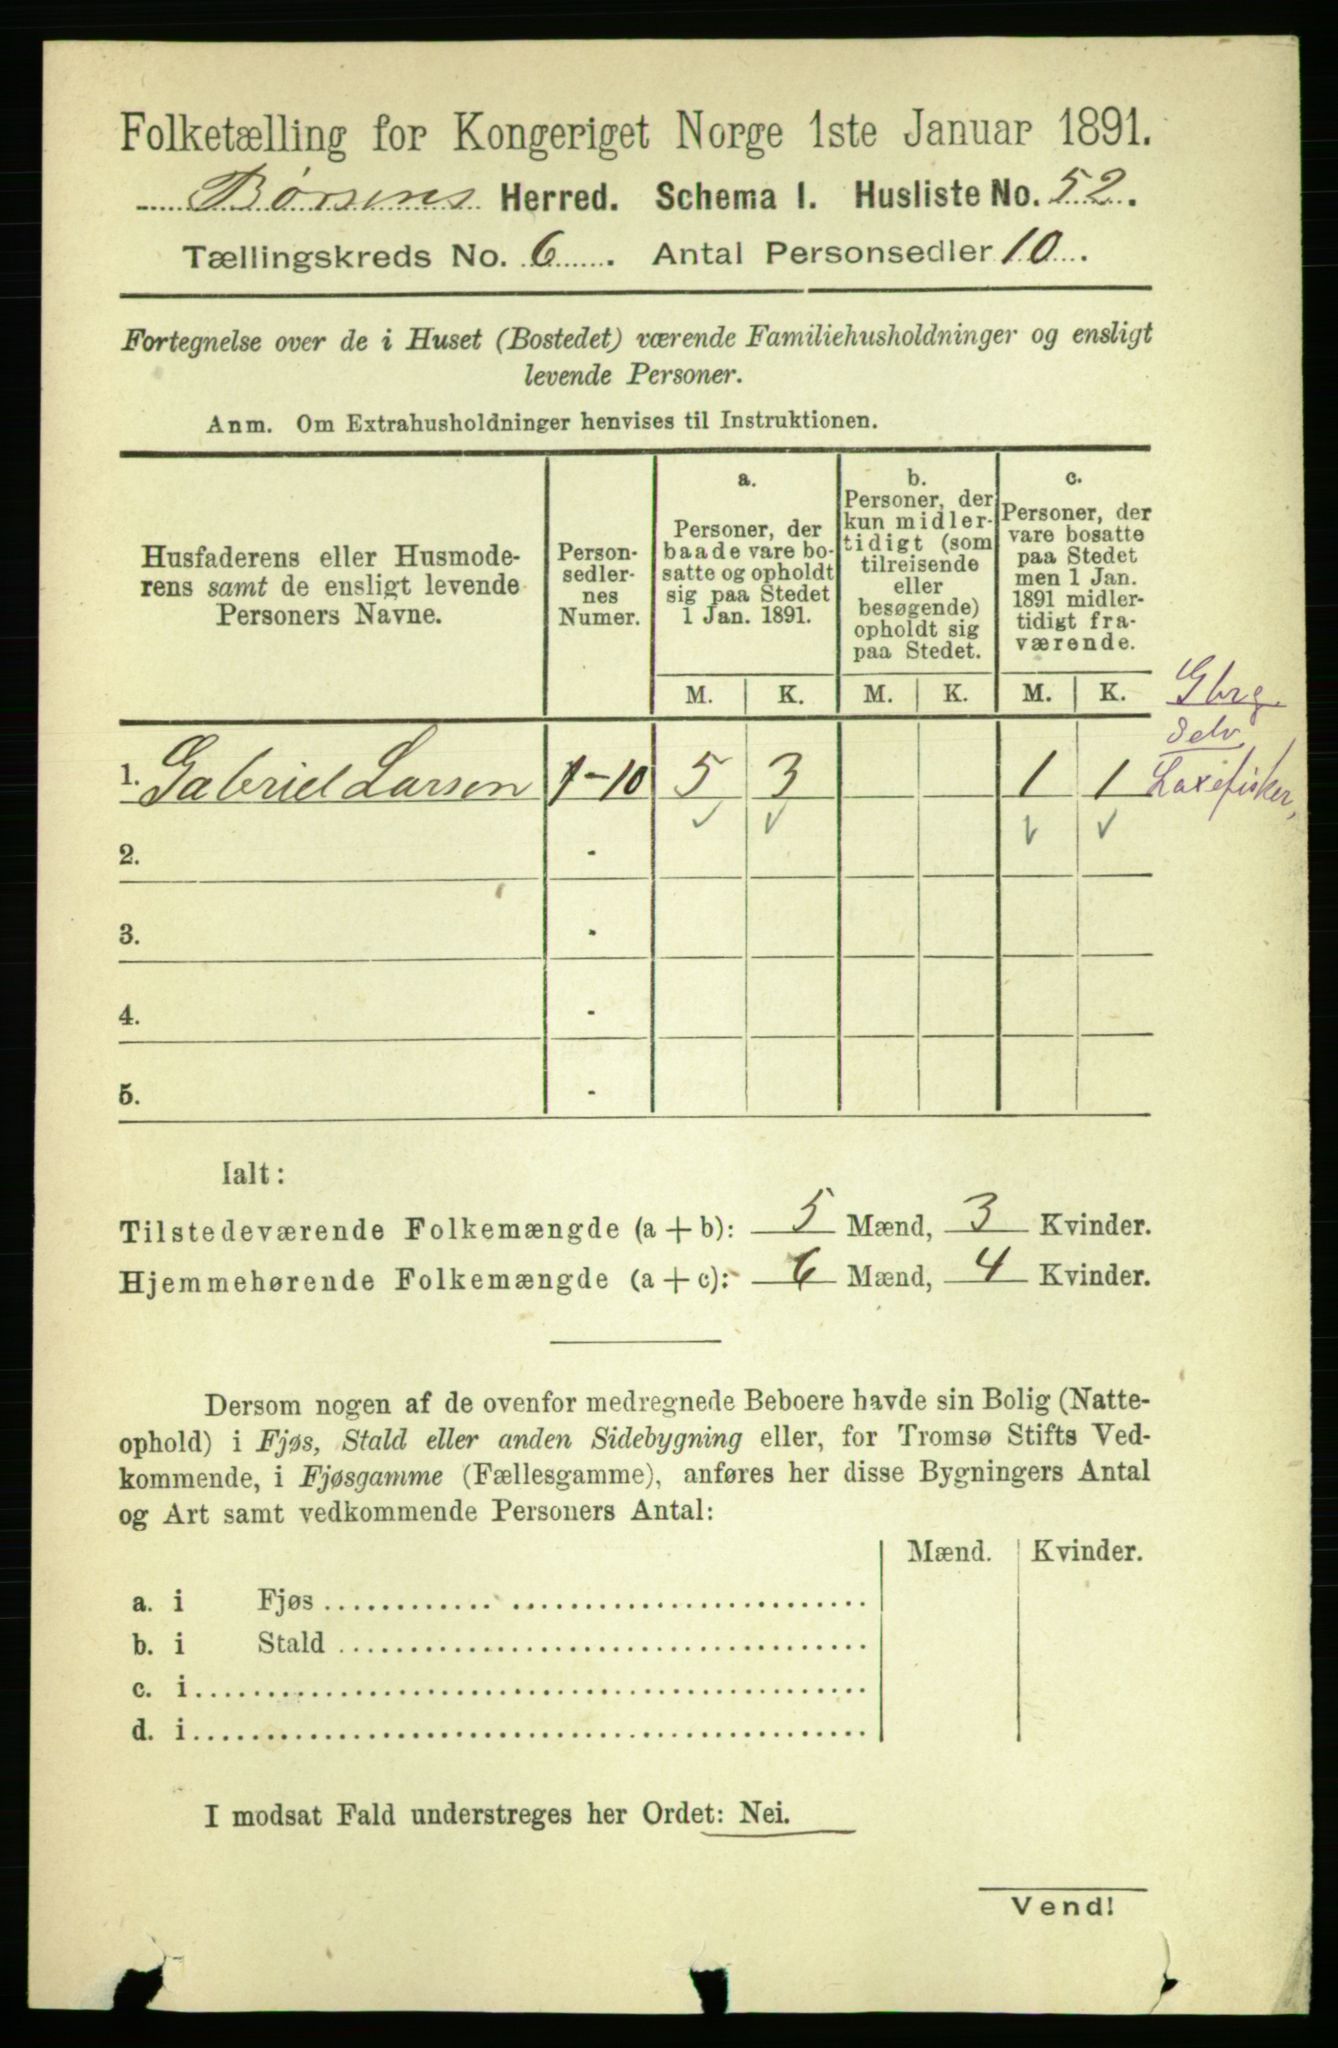 Folketælling for Kongeriget Norge 1ste Januar 1891.
Børsens Herred. Schema I. Husliste No. 52.
Tællingskreds No. 6. Antal Personsedler 10.
Fortegnelse over de i Huset (Bostedet) værende Familiehusholdninger og ensligt
levende Personer.
Anm. Om Extrahusholdninger henvises til Instruktionen.
Husfaderens eller Husmode-
rens samt de ensligt levende
Personers Navne.
Person-
sedler-
nes
Numer.
a.
Personer, der
baade vare bo-
satte og opholdt
sig paa Stedet
1 Jan. 1891.
b.
Personer, der
kun midler-
tidigt (som
tilreisende
eller
besøgende)
opholdt sig
paa Stedet.
c.
Personer, der
vare bosatte
paa Stedet
men 1 Jan.
1891 midler-
tidigt fra-
værende.
M. K. M. K. M. K.
Gbrg.
Selv
1. Gabriel Larsen 1-10 5 3 1 1 Laxefisker,
2. -
3. -
4. -
5. -
Ialt:
Tilstedeværende Folkemængde (a + b): 5 Mænd, 3 Kvinder.
Hjemmehørende Folkemængde (a + c): 6 Mænd, 4 Kvinder.
Dersom nogen af de ovenfor medregnede Beboere havde sin Bolig (Natte-
ophold) i Fjøs, Stald eller anden Sidebygning eller, for Tromsø Stifts Ved-
kommende, i Fjøsgamme (Fællesgamme), anføres her disse Bygningers Antal
og Art samt vedkommende Personers Antal:
Mænd. Kvinder.
a. i Fjøs
b. i Stald
c. i
d. i
I modsat Fald understreges her Ordet: Nei.
Vend!